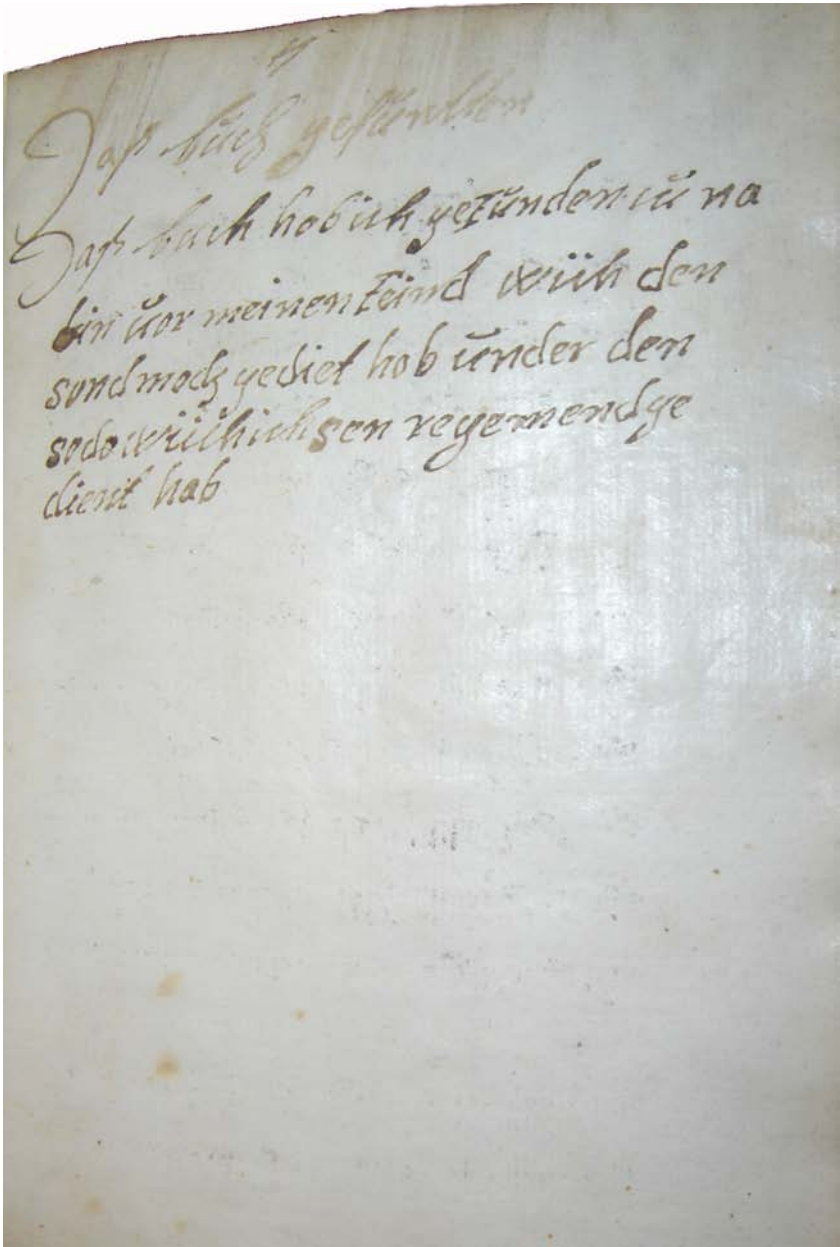 Daß buch gefunden
Daß buch hob ich gefunden in na
bin vor meinen Feind wüh den
sond modz gediet hob under den
sodo wüh ich sen regemend ge
dient hab